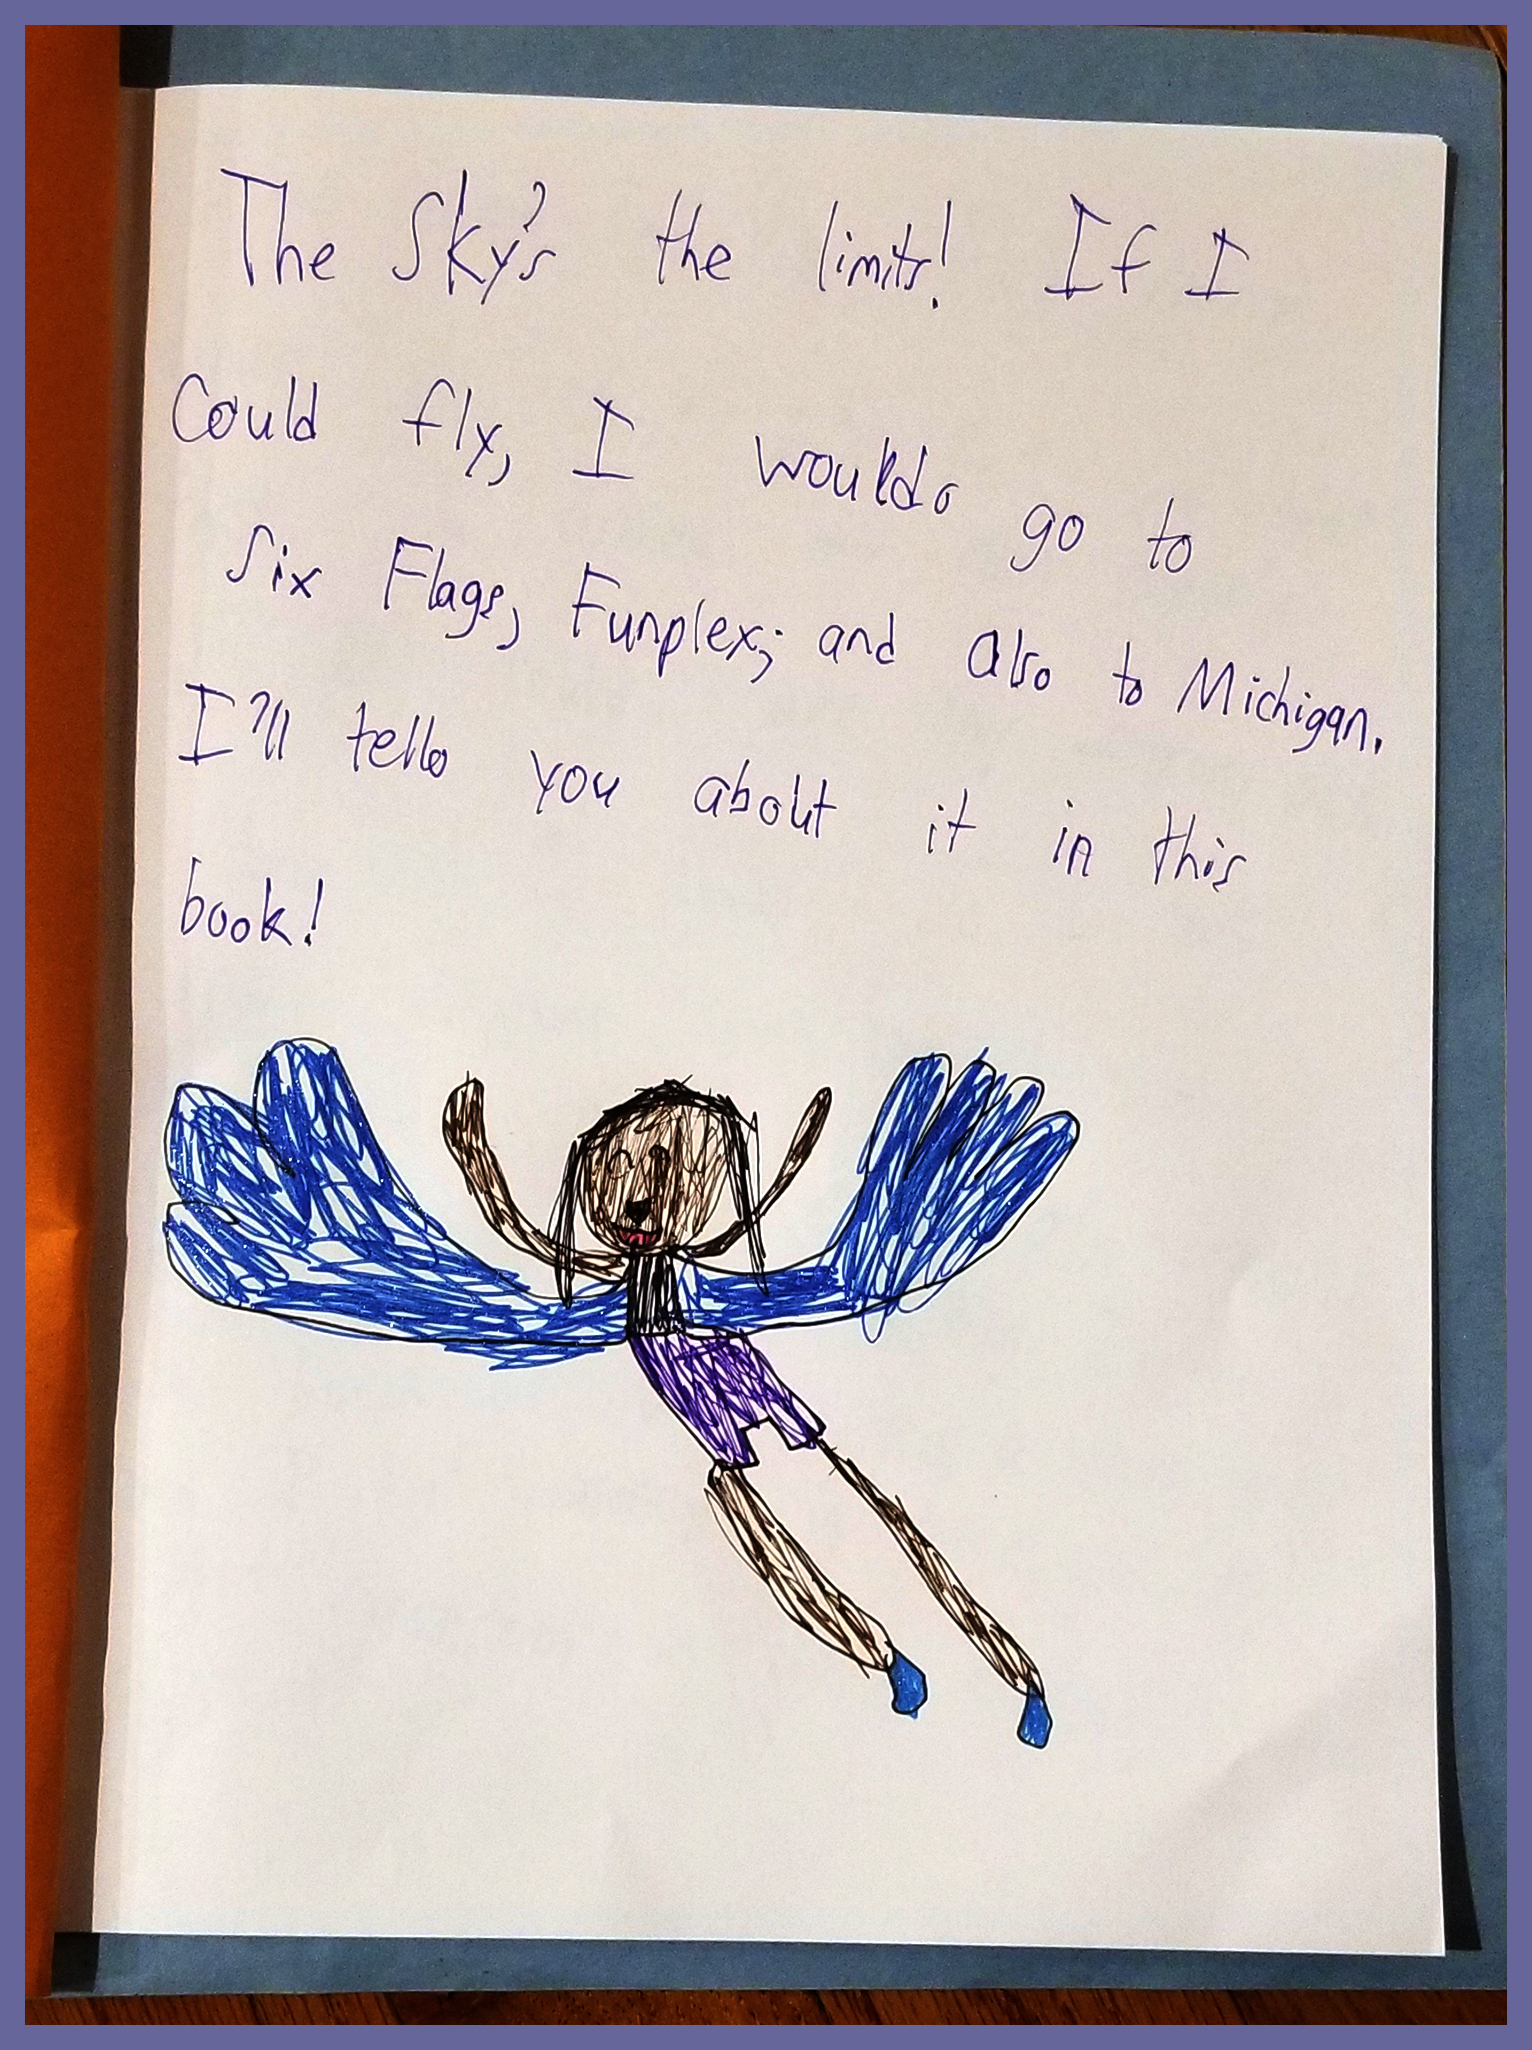 The Sky's the limits! If I
Could fly, I would go to
Six Flags, Funplex; and also to Michigan.
I'll tell you about it in this
book!